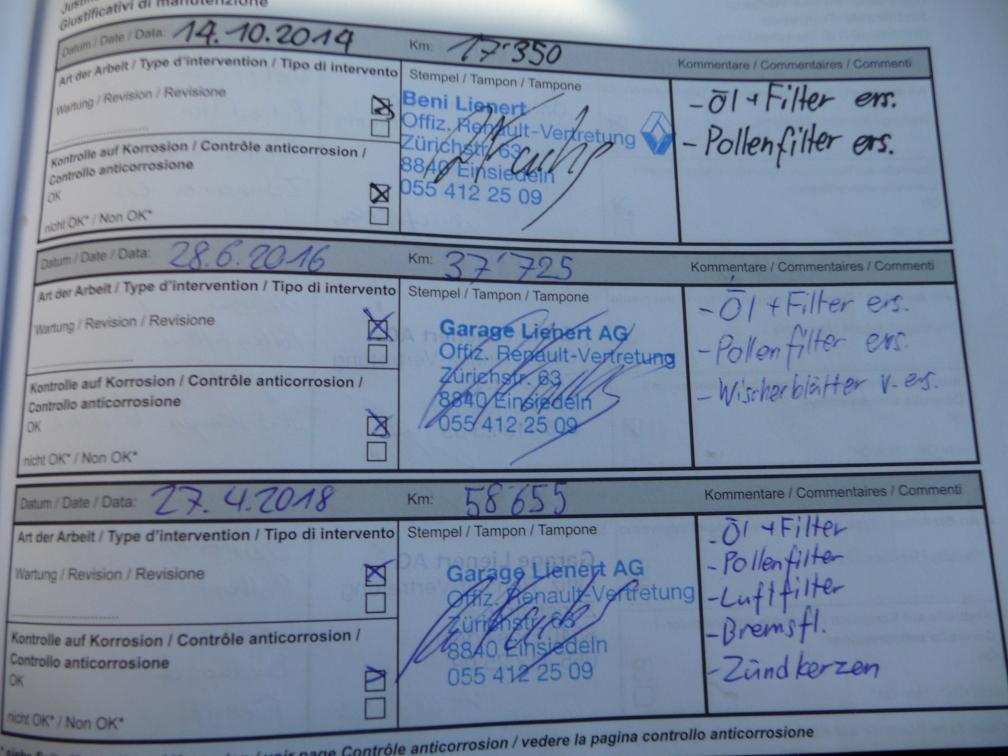 Giustificativi di manutenzione
Datum / Date / Data: 14.10.2014 Km: 17'350 Kommentare / Commentaires / Commenti
Art der Arbeit / Type d'intervention / Tipo di intervento
Wartung / Revision / Revisione
Kontrolle auf Korrosion / Contrôle anticorrosion /
Controllo anticorrosione
OK
nicht OK* / Non OK*
Stempel / Tampon / Tampone
Beni Lienert
Offiz. Renault-Vertretung
Zürichstr. 63
8840 Einsiedeln
055 412 25 09
- Öl + Filter ers.
- Pollenfilter ers.
Datum / Date / Data: 28.6.2016 Km: 37'725 Kommentare / Commentaires / Commenti
Art der Arbeit / Type d'intervention / Tipo di intervento
Wartung / Revision / Revisione
Kontrolle auf Korrosion / Contrôle anticorrosion /
Controllo anticorrosione
OK
nicht OK* / Non OK*
Stempel / Tampon / Tampone
Garage Lienert AG
Offiz. Renault-Vertretung
Zürichstr. 63
8840 Einsiedeln
055 412 25 09
- Öl + Filter ers.
- Pollenfilter ers.
- Wischerblätter v. ers.
Datum / Date / Data: 27.4.2018 Km: 58'655 Kommentare / Commentaires / Commenti
Art der Arbeit / Type d'intervention / Tipo di intervento
Wartung / Revision / Revisione
Kontrolle auf Korrosion / Contrôle anticorrosion /
Controllo anticorrosione
OK
nicht OK* / Non OK*
Stempel / Tampon / Tampone
Garage Lienert AG
Offiz. Renault-Vertretung
Zürichstr. 63
8840 Einsiedeln
055 412 25 09
- Öl + Filter
- Pollenfilter
- Luftfilter
- Bremsfl.
- Zündkerzen
/ voir page Contrôle anticorrosion / vedere la pagina controllo anticorrosione